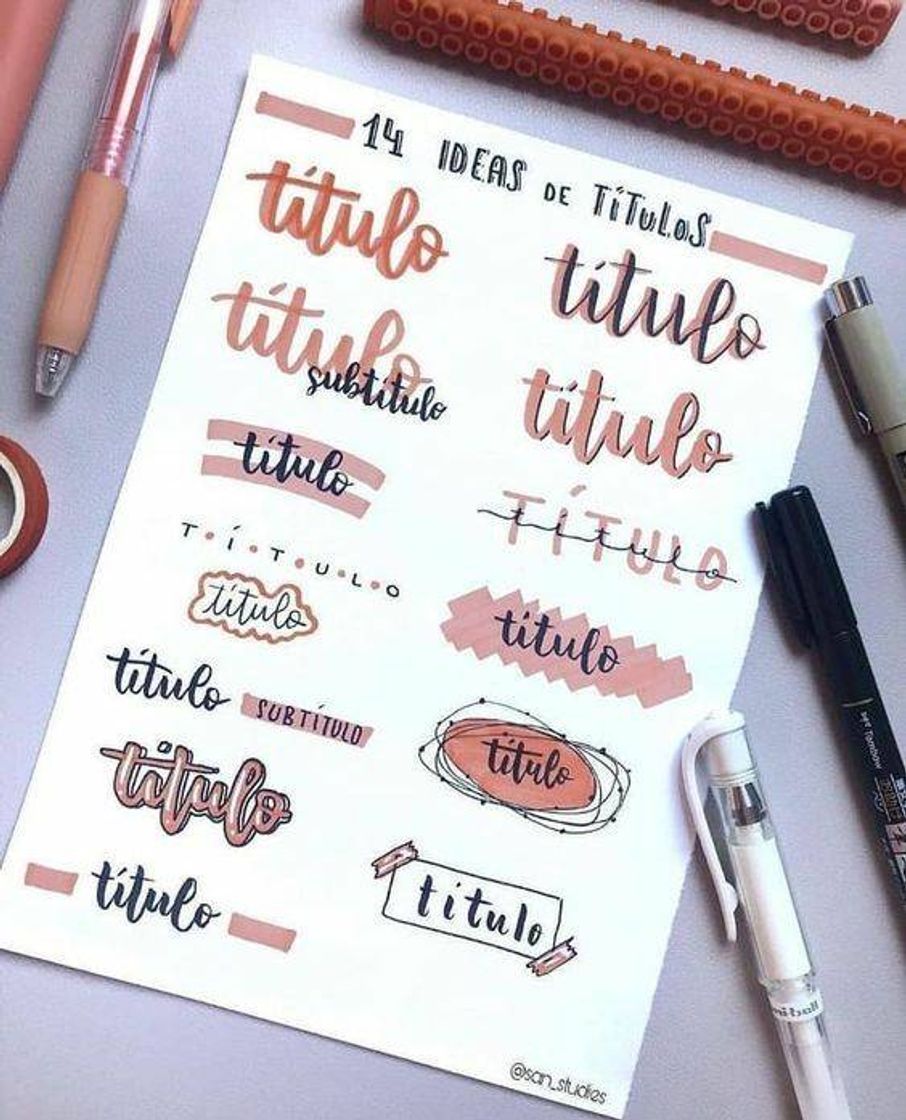 14 IDEAS DE TÍTULOS
título
título
título
subtítulo
título
título
TÍTULO
título
T·Í·T·U·L·O
título
título
título SUBTÍTULO
título
título
título
título
@san_studies
Tombow
uni-ball